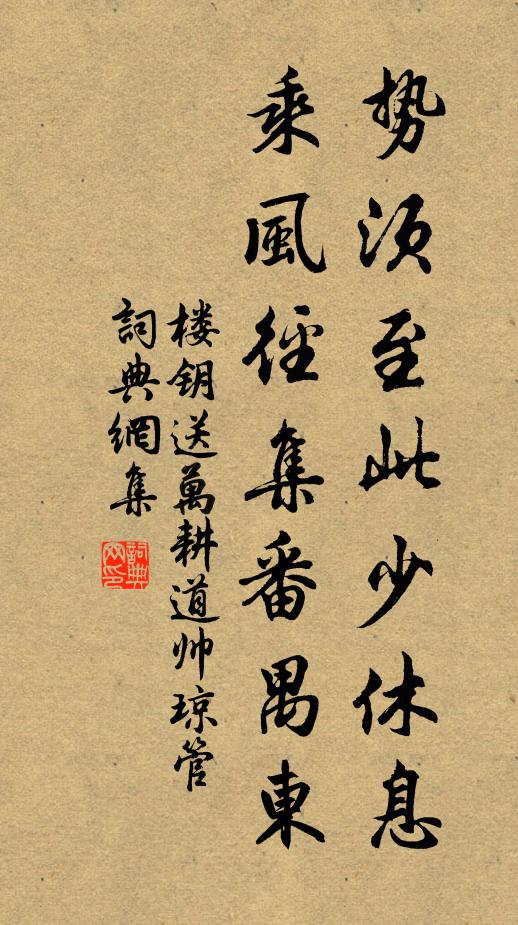 势须至此少休息
乘風径集番禺東
楼钥送萬耕道帅琼管
詞典網集
詞典網印